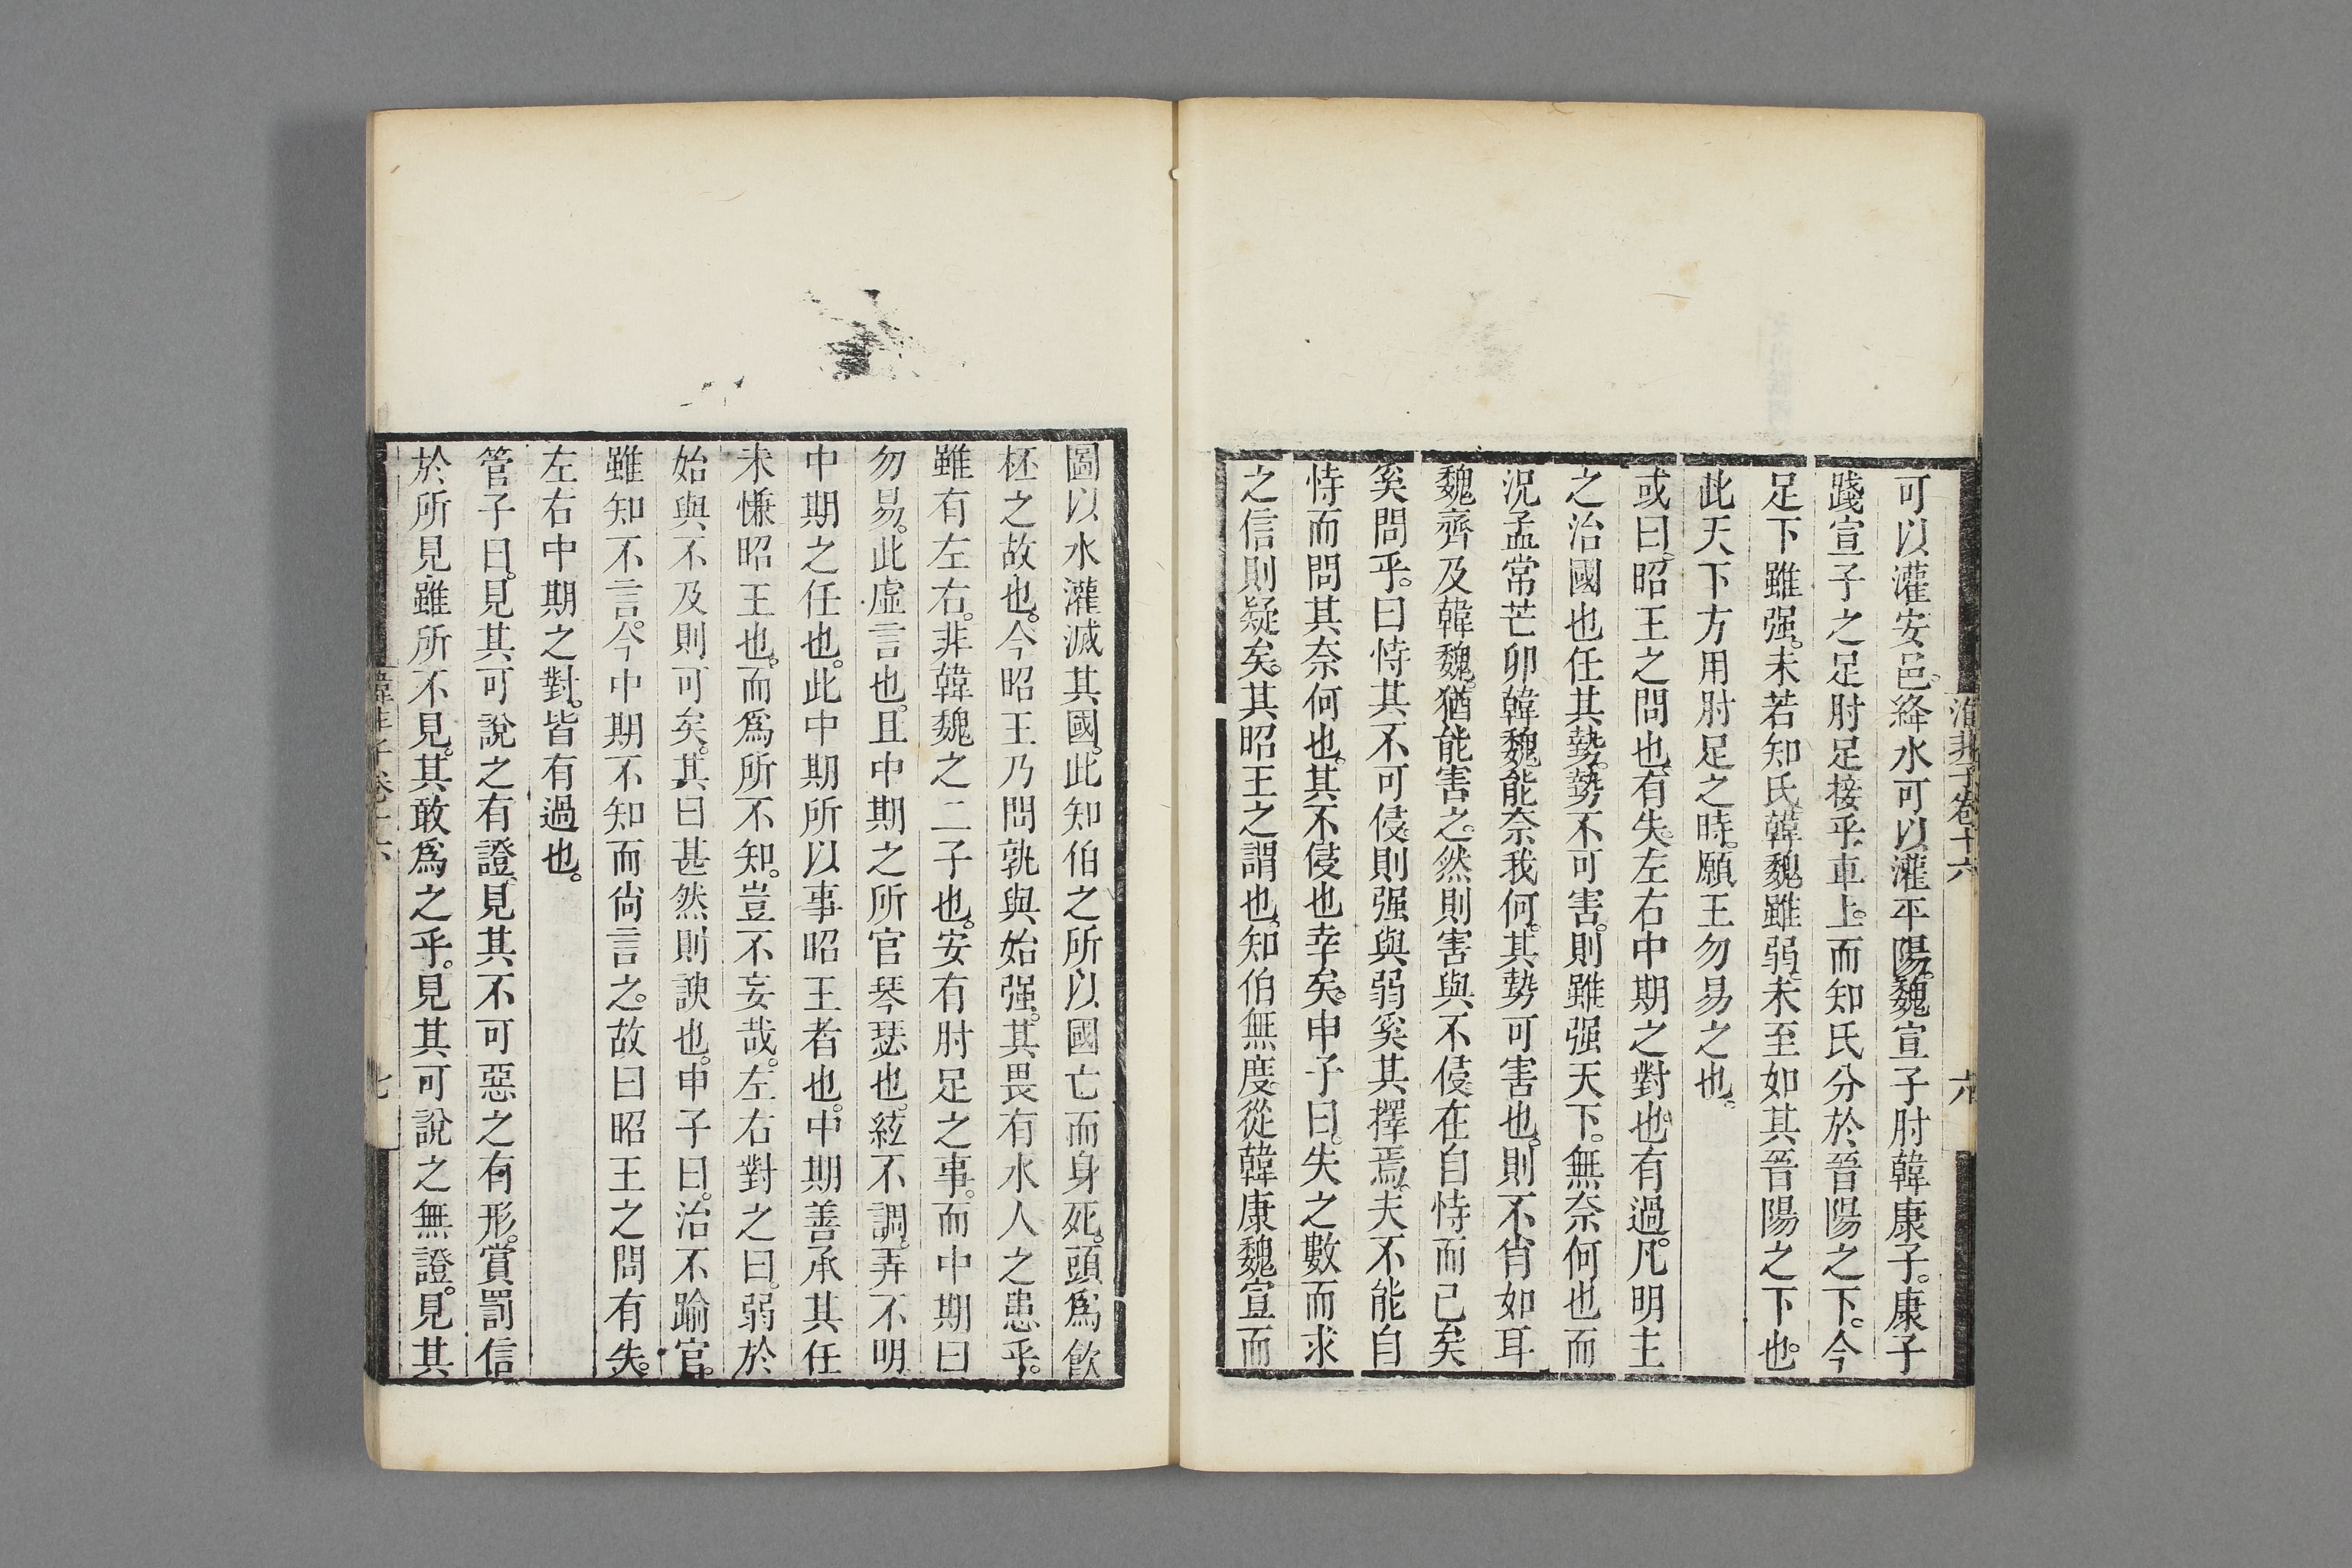 可以灌安邑。絳水可以灌平陽。魏宣子肘韓康子。康子
踐宣子之足。肘足接乎車上。而知氏分於晉陽之下。今
足下雖强。未若知氏。韓魏雖弱。未至如其晉陽之下也。
此天下方用肘足之時。願王勿易之也。
或曰。昭王之問也有失。左右中期之對也有過。凡明主
之治國也任其勢。勢不可害。則雖强天下。無奈何也而
況孟常芒卯韓魏能奈我何。其勢可害也。則不肖如耳
魏齊及韓魏。猶能害之。然則害與不侵在自恃而已矣
奚問乎。曰恃其不可侵。則强與弱奚其擇焉。夫不能自
恃而問其奈何也。其不侵也幸矣。申子曰。失之數而求
之信則疑矣。其昭王之謂也。知伯無度從韓康魏宣而
韓非子卷十六
六
圖以水灌滅其國。此知伯之所以國亡而身死。頭爲飮
杯之故也。今昭王乃問孰與始强。其畏有水人之患乎。
雖有左右。非韓魏之二子也。安有肘足之事。而中期曰
勿易。此虛言也。且中期之所官琴瑟也。絃不調。弄不明
中期之任也。此中期所以事昭王者也。中期善承其任
未慊昭王也。而爲所不知。豈不妄哉。左右對之曰。弱於
始與不及則可矣。其曰甚然則諛也。申子曰。治不踰官。
雖知不言。今中期不知而尙言之。故曰昭王之問有失。
左右中期之對。皆有過也。
管子曰。見其可說之有證。見其不可惡之有形。賞罰信
於所見雖所不見。其敢爲之乎。見其可說之無證。見其
韓非子卷十六
七